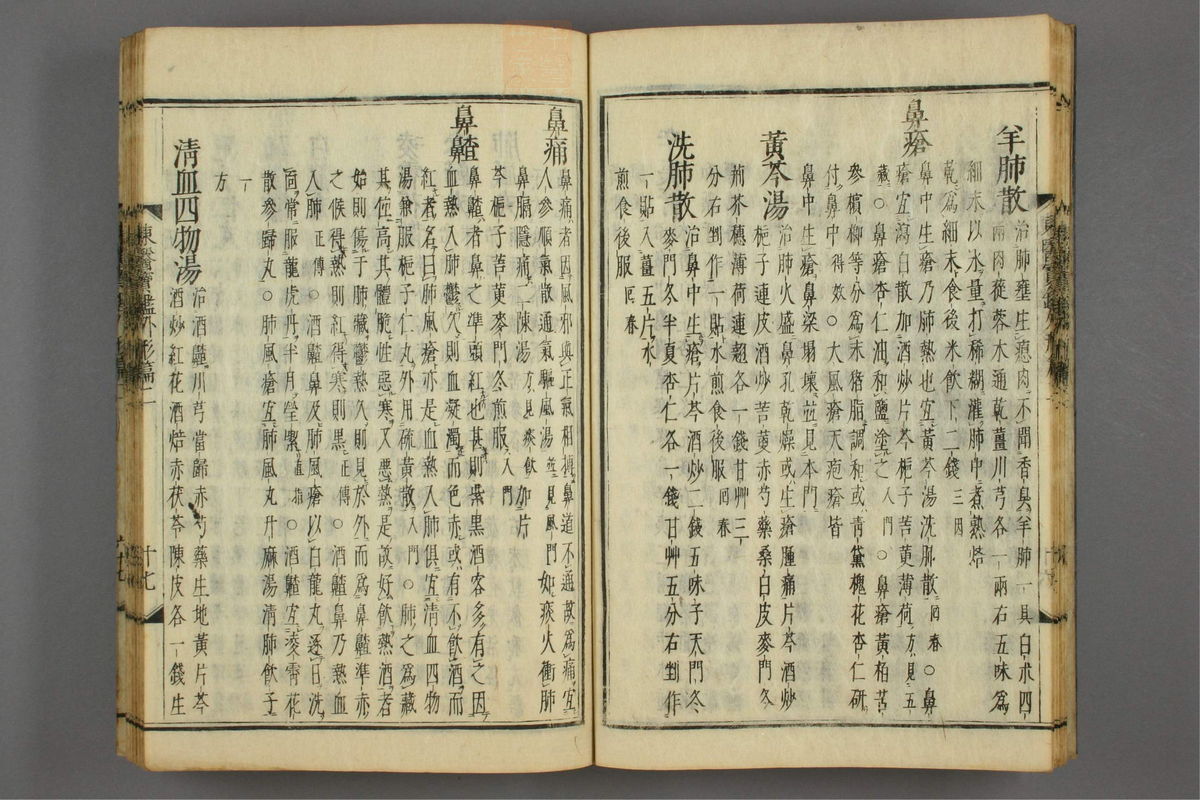 羊肺散 治肺壅生瘜肉不聞香臭羊肺一具白朮四
兩肉蓯蓉木通乾薑川芎各一兩右五味爲
細末以水量打稀糊灌肺中煮熟焙
乾爲細末食後米飲下二錢三因
鼻瘡
鼻中生瘡乃肺熱也宜黃芩湯洗肺散回春○鼻
瘡宜瀉白散加酒炒片芩梔子苦黃薄荷方見五
藏○鼻瘡杏仁油和鹽塗之入門○鼻瘡黃栢苦
參檳柳等分爲末猪脂調和或靑黛槐花杏仁硏
付鼻中得效○大風瘡天疱瘡皆
鼻中生瘡鼻梁塌壞並見本門
黃芩湯 治肺火盛鼻孔乾燥或生瘡腫痛片芩酒炒
梔子連皮酒炒苦莄赤芍藥桑白皮麥門冬
荊芥穗薄荷連翹各一錢甘艸三
分右剉作一貼水煎食後服回春
洗肺散 治鼻中生瘡片芩酒炒二錢五味子天門冬
麥門冬半夏杏仁各一錢甘艸五分右剉作
一貼入薑五片水
煎食後服回春
鼻痛
鼻痛者因風邪與正氣相摶鼻道不通故爲痛宜
人參順氣散通氣驅風湯並見風門如痰火衝肺
鼻膈隱痛二陳湯方見痰飮加片
芩梔子苦黃麥門冬煎服入門
鼻齄
鼻齄者鼻之準頭紅也甚則柴黑酒客多有之因
血熱入肺鬱久則血凝濁而色赤或有不飮酒而
紅者名曰肺風瘡亦是血熱入肺俱宜淸血四物
湯兼服梔子仁丸外用硫黃散入門○肺之爲藏
其位高其體脆性惡寒又惡熱是故好飮熱酒者
始則傷于肺藏鬱熱久則見於外而爲鼻齄準赤
之候得熱則紅得寒則黑正傳○酒齄鼻乃熱血
入肺正傳○酒齄鼻及肺風瘡以白龍丸逐日洗
面常服龍虎丹半月瑩潔直指○酒齄宜凌霄花
散參歸丸○肺風瘡宜肺風丸升麻湯淸肺飮子
一方
淸血四物湯 治酒齄川芎當歸赤芍藥生地黃片芩
酒炒紅花酒焙赤茯苓陳皮各一錢生